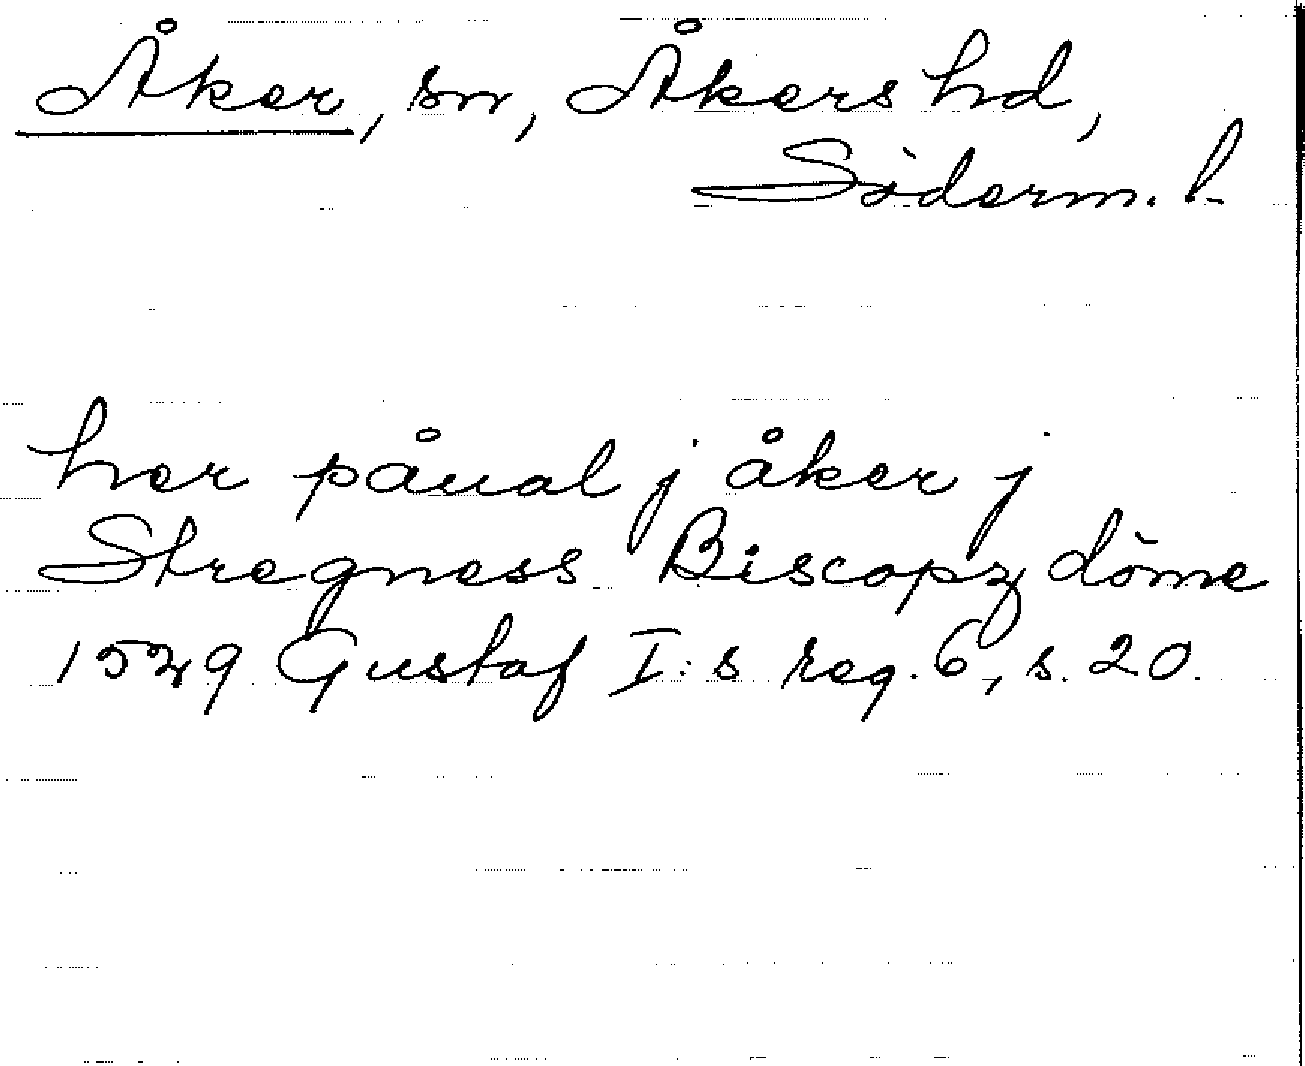 Åker, sn, Åkers hd,
Söderm. l.
her påual j åker j
Stregness Biscopz döme
1529 Gustaf I:s reg. 6, s. 20.